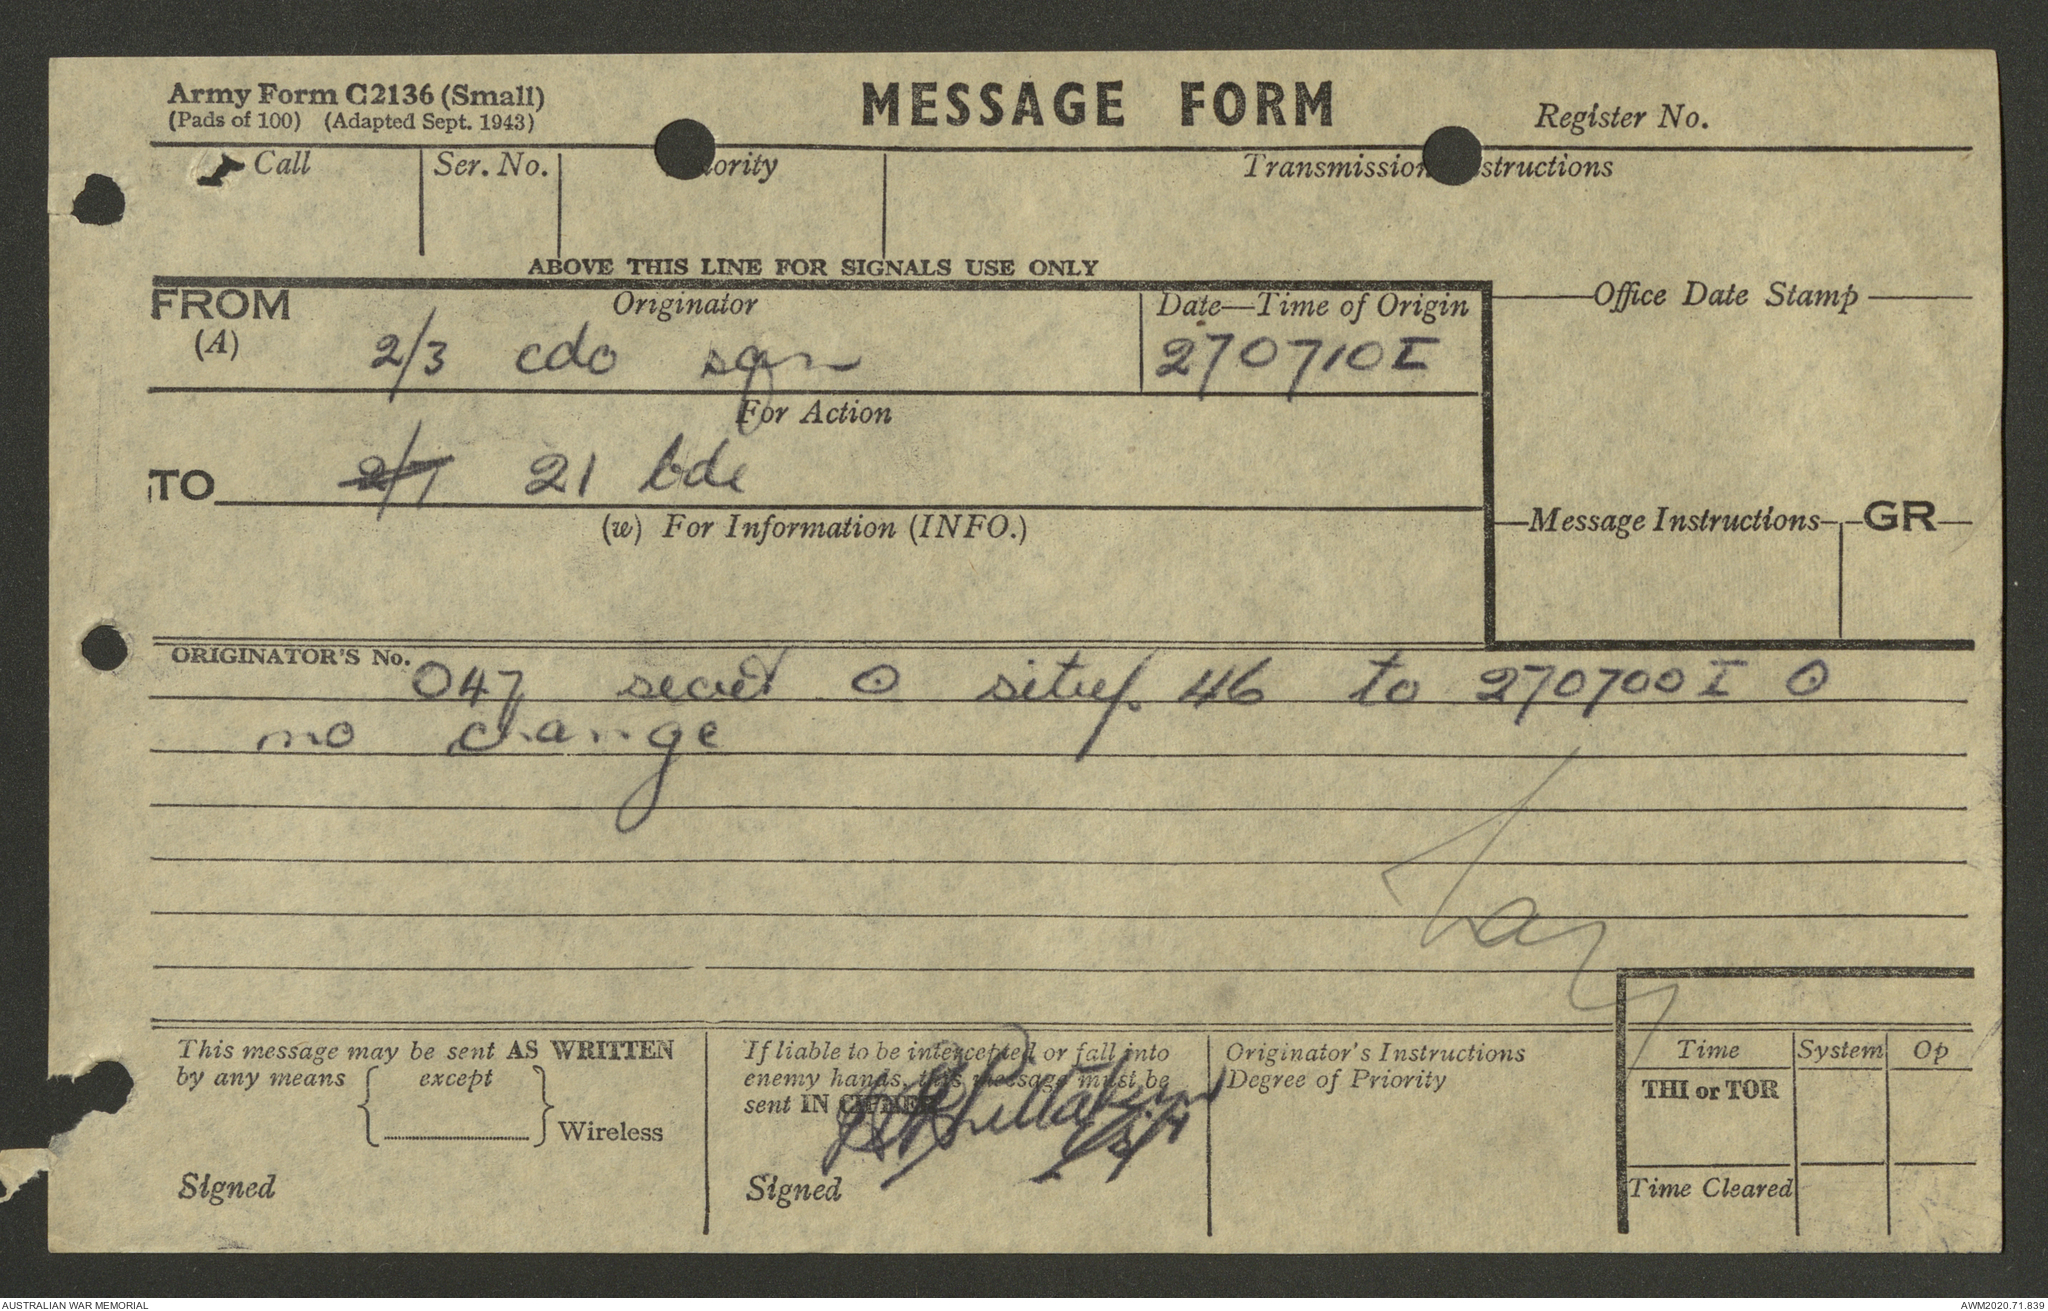 Army Form C2136 (Small)
(Pads of 100) (Adapted Sept. 1943)
MESSAGE FORM
Register No.
Call
Ser. No.
ority
Transmission structions
ABOVE THIS LINE FOR SIGNALS USE ONLY
FROM
(A)
Originator
2/3 cdo sqn
Date—Time of Origin
270710I
Office Date Stamp
For Action
TO 2/7 21 bde
(w) For Information (INFO.)
Message Instructions
GR
ORIGINATOR'S No.
047 secret O sitrep 46 to 270700I O
no change
This message may be sent AS WRITTEN
by any means except
Wireless
Signed
If liable to be intercepted or fall into
enemy hands, this message must be
sent IN CIPHER
Signed
Originator's Instructions
Degree of Priority
Time System Op
THI or TOR
Time Cleared
AUSTRALIAN WAR MEMORIAL
AWM2020.71.839